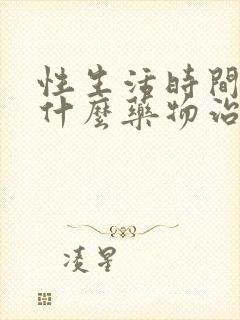 性生活時間
什麼藥物治
凌星